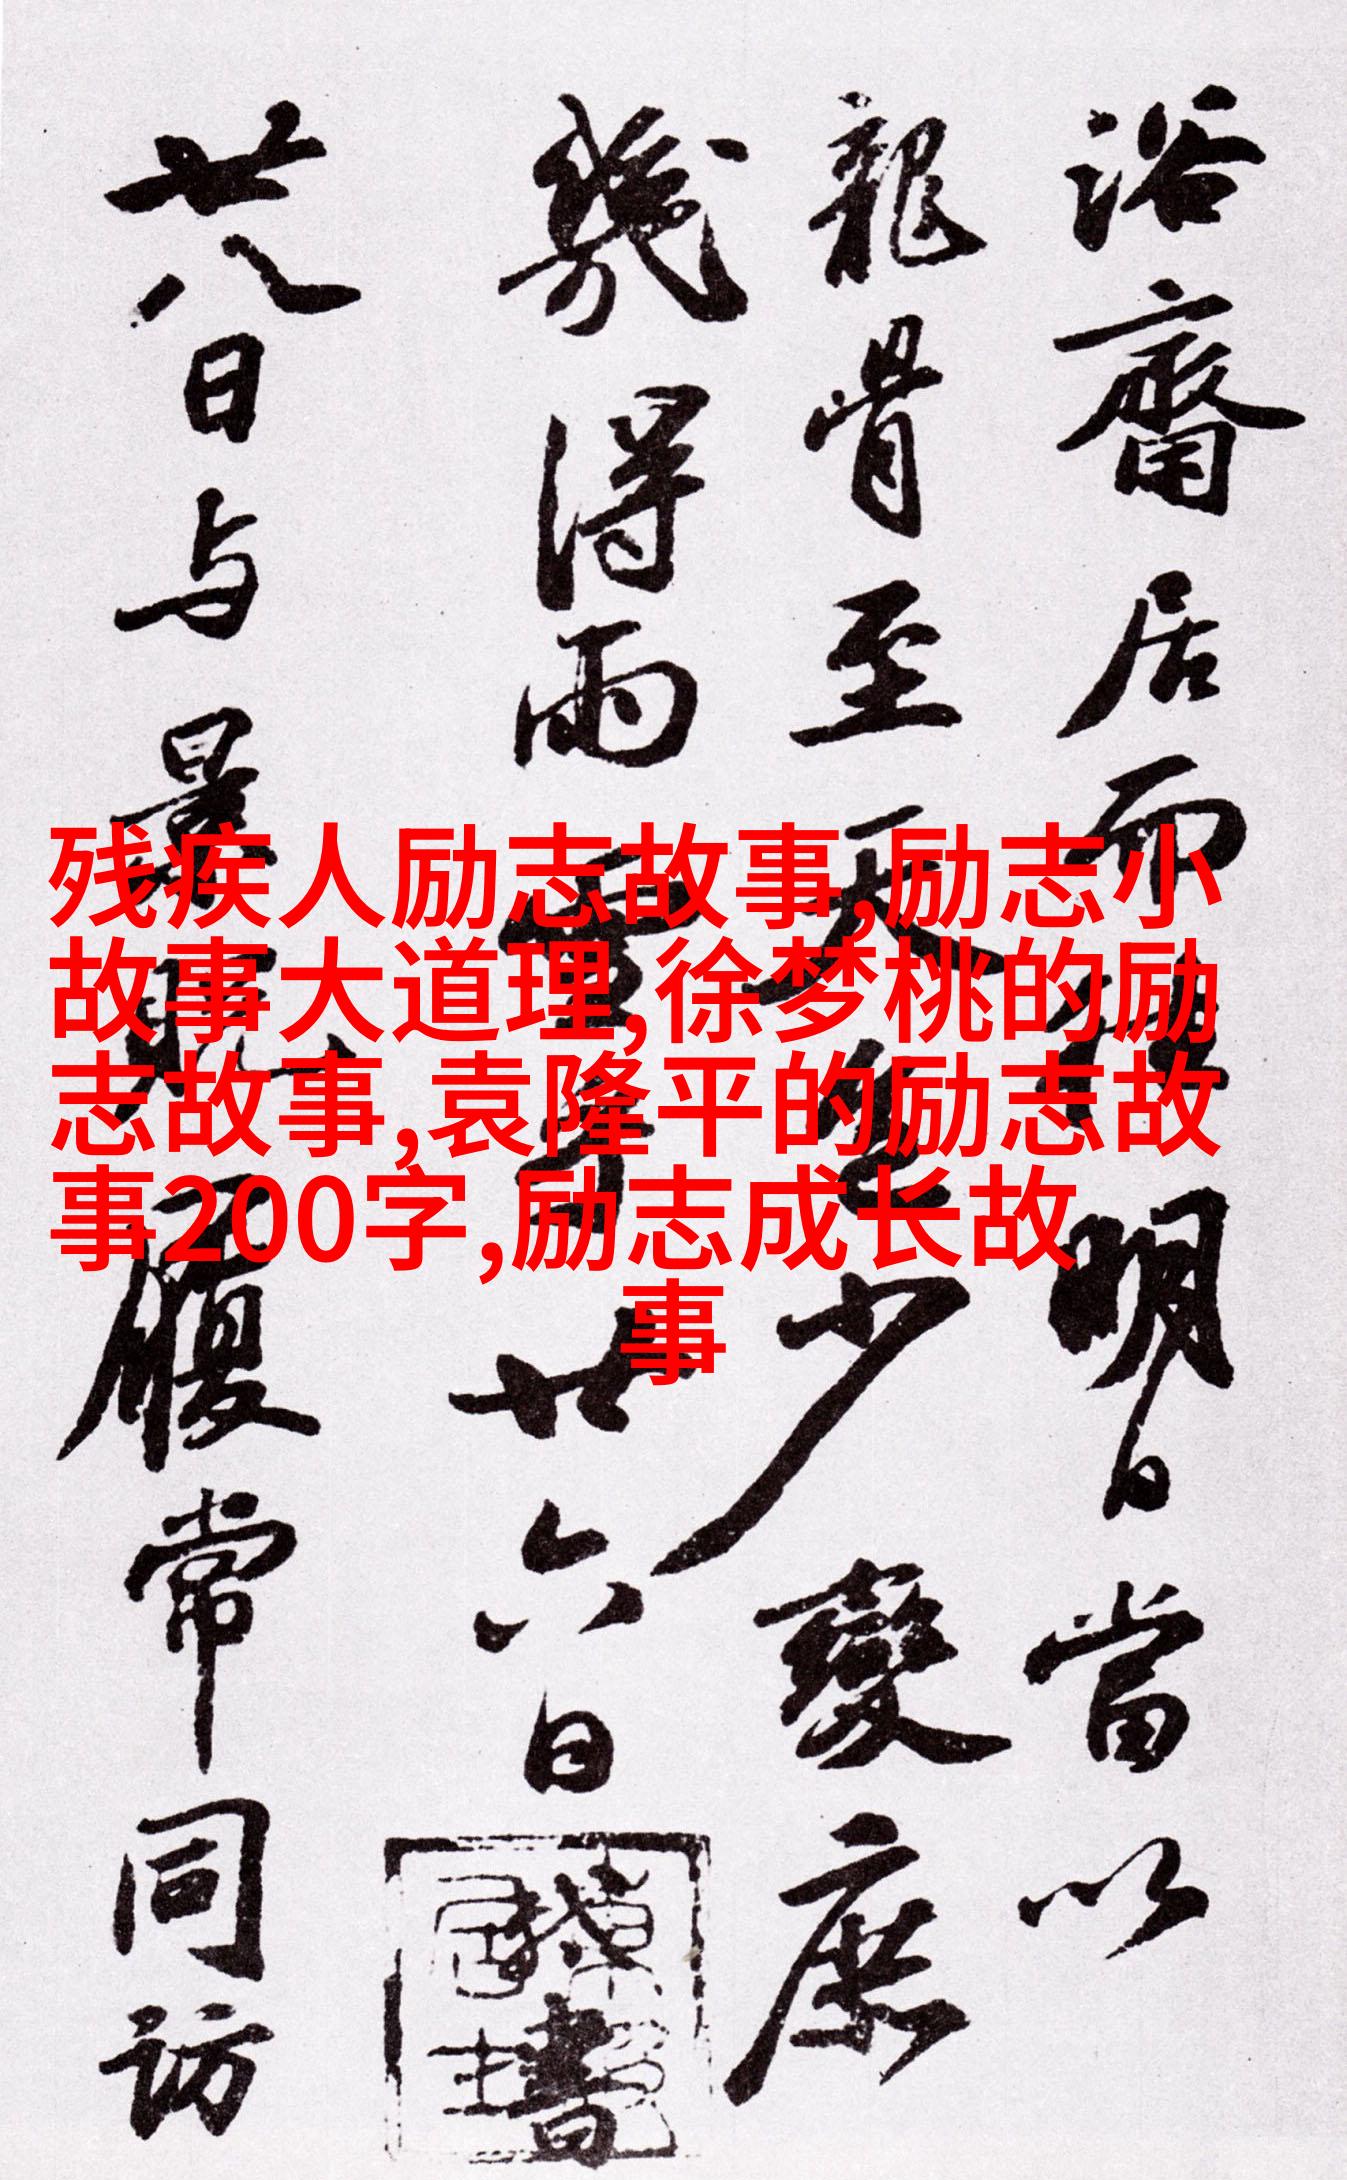 浴齋居而明日當以
龍骨至天少變庶
幾得雨雪耳廿六日書
廿八日与景貺履常同訪
残疾人励志故事,励志小
故事大道理,徐梦桃的励
志故事,袁隆平的励志故
事200字,励志成长故
事